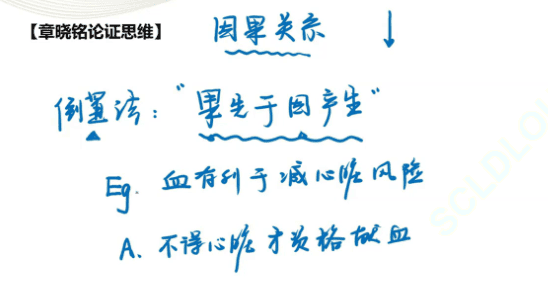 【章晓铭论证思维】
因果关系 ↓
倒置法："果先于因产生"
Eg. 血有利于减心脏风险
A. 不得心脏才资格献血
SCLDLOL